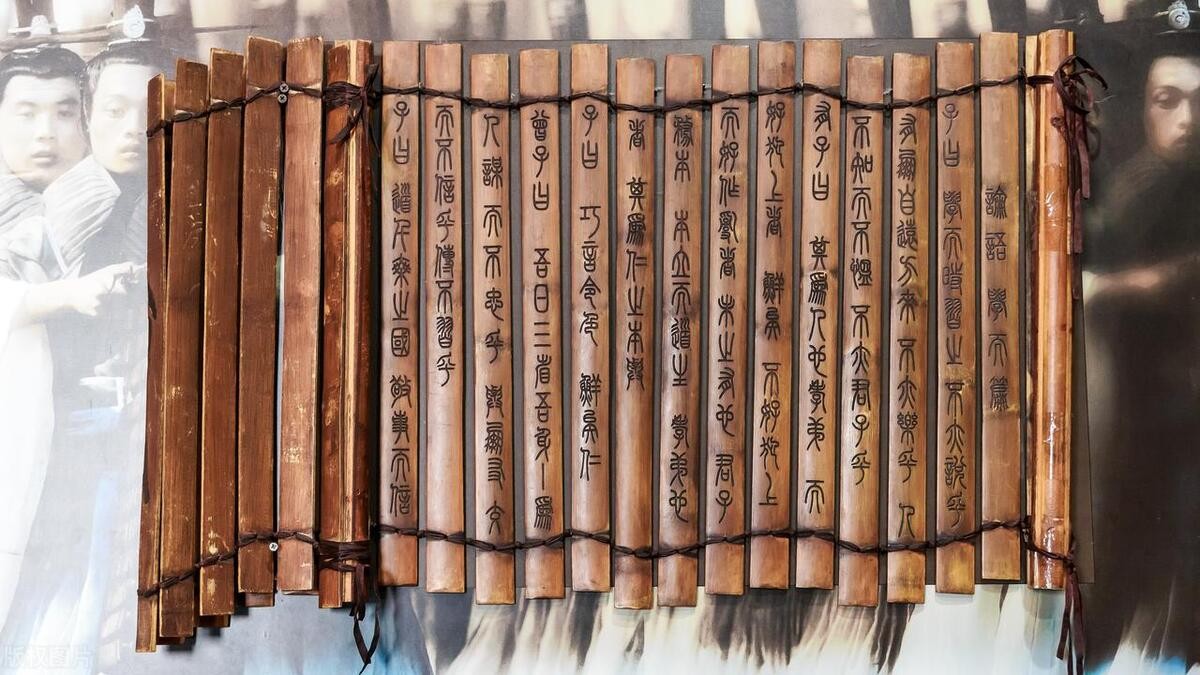 論語 學而篇
子曰 學而時習之 不亦說乎
有朋自遠方來 不亦樂乎 人
不知而不慍 不亦君子乎
有子曰 其為人也孝弟 而
好犯上者 鮮矣 不好犯上
而好作亂者 未之有也 君子
務本 本立而道生 孝弟也
者 其為仁之本與
子曰 巧言令色 鮮矣仁
曾子曰 吾日三省吾身 為
人謀而不忠乎 與朋友交
而不信乎傳不習乎
子曰 道千乘之國 敬事而信
版权图片